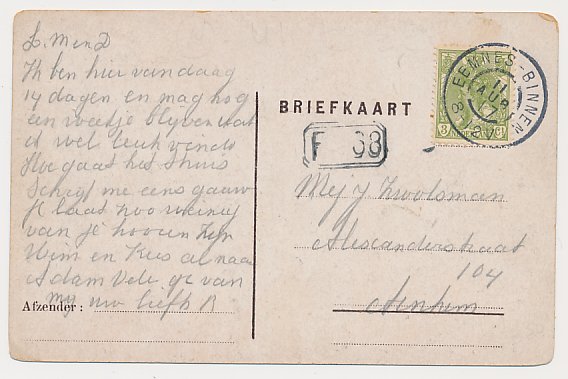 L. M en D
Ik ben hier vandaag
14 dagen en mag nog
een weekje blijven wat
ik wel leuk vind
Hoe gaat het thuis
Schrijf me eens gauw
je laat zoo weinig
van je hooren
Wim en Kees al naar
Adam Vele gr van
Afzender :
BRIEFKAART
F 38
EEMNES-BINNEN
11
AUG
Mej J Zwolsman
Alexanderstraat
104
Arnhem